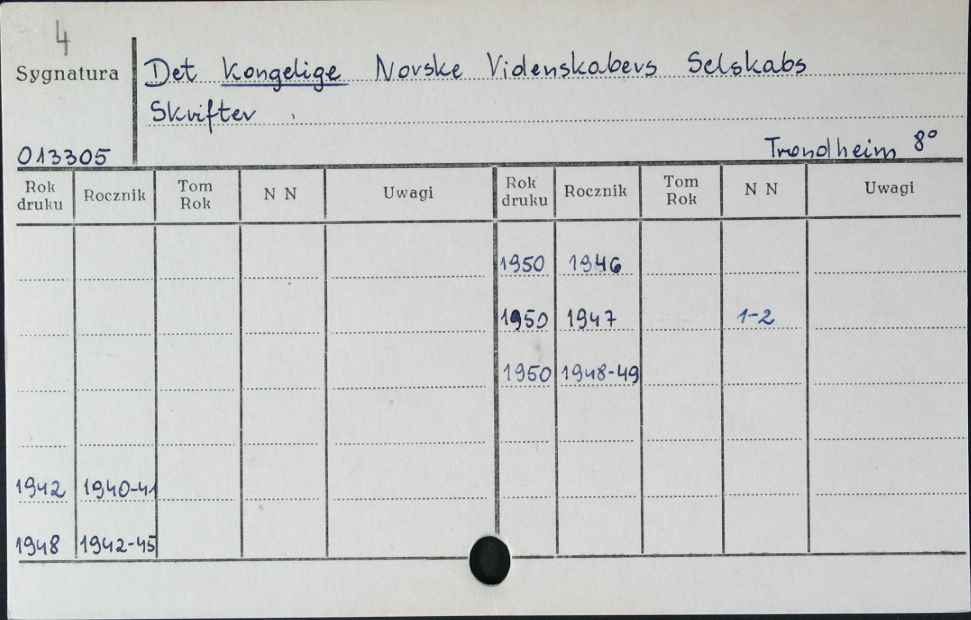 4
Sygnatura
Det Kongelige Norske Videnskabers Selskabs
Skrifter
013305
Trondheim 8°
Rok druku Rocznik Tom Rok N N Uwagi Rok druku Rocznik Tom Rok N N Uwagi
1950 1946
1950 1947 1-2
1950 1948-49
1942 1940-41
1948 1942-45